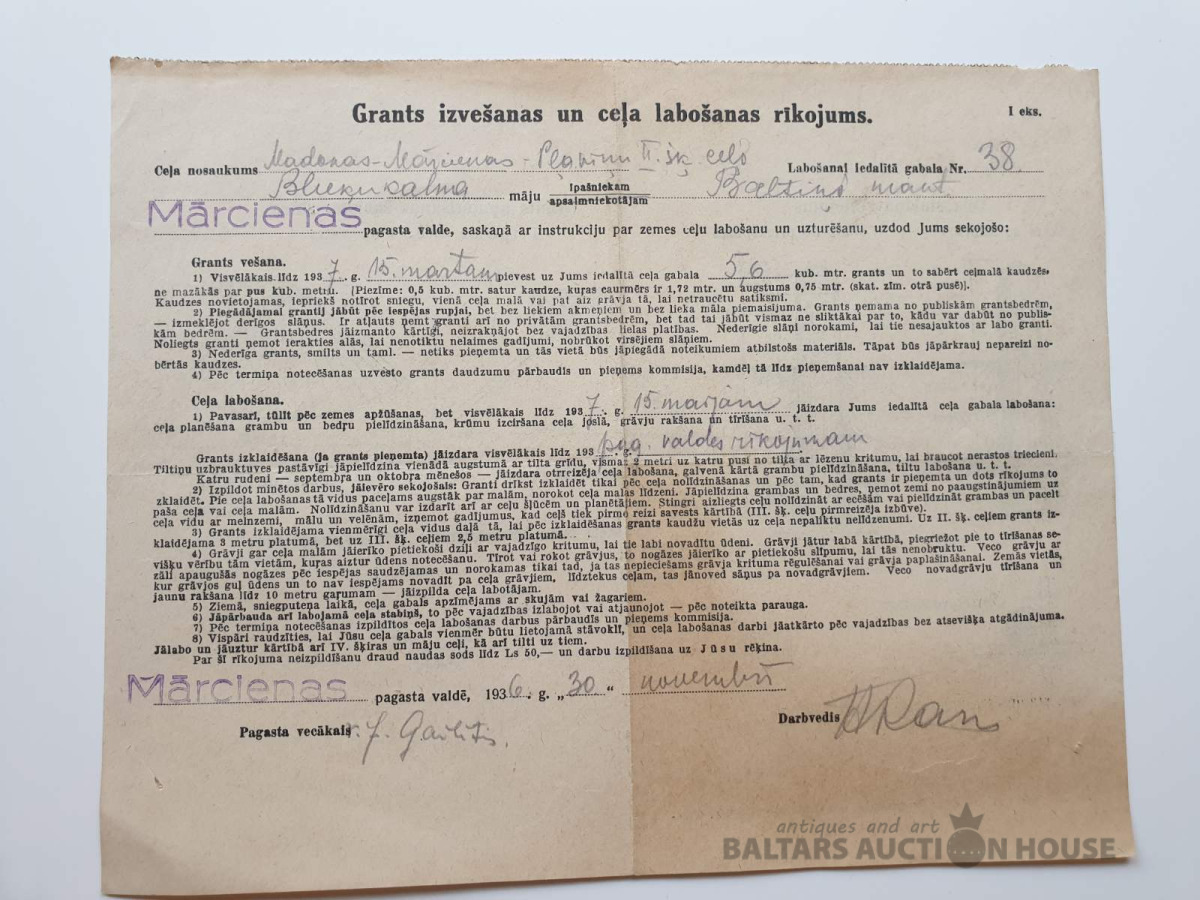 Grants izvešanas un ceļa labošanas rīkojums.
I eks.
Ceļa nosaukums Madonas-Mārcienas-Pļaviņu II. šķ. ceļš Labošanai iedalītā gabala Nr. 38.
māju īpašniekam
apsaimniekotājam
Mārcienas pagasta valde, saskaņā ar instrukciju par zemes ceļu labošanu un uzturēšanu, uzdod Jums sekojošo:
Grants vešana.
1) Visvēlākais līdz 1937. g. 15. martam pievest uz Jums iedalītā ceļa gabala 5,6 kub. mtr. grants un to sabērt ceļmalā kaudzēs,
ne mazākās par pus kub. metru. [Piezīme: 0,5 kub. mtr. satur kaudze, kuras caurmērs ir 1,72 mtr. un augstums 0,75 mtr. (skat. zīm. otrā pusē)].
Kaudzes novietojamas, iepriekš notīrot sniegu, vienā ceļa malā vai pat aiz grāvja tā, lai netraucētu satiksmi.
2) Piegādājamai grantij jābūt pēc iespējas rupjai, bet bez liekiem akmeņiem un bez lieka māla piemaisījuma. Grants ņemama no publiskām grantsbedrēm,
— izmeklējot derīgos slāņus. Ir atļauts ņemt granti arī no privātām grantsbedrēm, bet tad tai jābūt vismaz ne sliktākai par to, kādu var dabūt no publis-
kām bedrēm. — Grantsbedres jāizmanto kārtīgi, neizrakņājot bez vajadzības lielas platības. Nederīgie slāņi norokami, lai tie nesajauktos ar labo granti.
Noliegts granti ņemot ierakties alās, lai nenotiktu nelaimes gadījumi, nobrūkot virsējiem slāņiem.
3) Nederīga grants, smilts un taml. — netiks pieņemta un tās vietā būs jāpiegādā noteikumiem atbilstošs materiāls. Tāpat būs jāpārkrauj nepareizi no-
bērtās kaudzes.
4) Pēc termiņa notecēšanas uzvesto grants daudzumu pārbaudīs un pieņems kommisija, kamdēļ tā līdz pieņemšanai nav izklaidējama.
Ceļa labošana.
1) Pavasarī, tūlīt pēc zemes apžūšanas, bet visvēlākais līdz 1937. g. 15. maijam jāizdara Jums iedalītā ceļa gabala labošana:
ceļa planēšana grambu un bedŗu pielīdzināšana, krūmu izciršana ceļa joslā, grāvju rakšana un tīrīšana u. t. t.
Grants izklaidēšana (ja grants pieņemta) jāizdara visvēlākais līdz 193 . g. pag. valdes rīkojumam
Tiltiņu uzbrauktuves pastāvīgi jāpielīdzina vienādā augstumā ar tilta grīdu, vismaz 2 metri uz katru pusi no tilta ar lēzenu kritumu, lai braucot nerastos triecieni.
Katru rudeni — septembŗa un oktobŗa mēnešos — jāizdara otrreizēja ceļa labošana, galvenā kārtā grambu pielīdzināšana, tiltu labošana u. t. t.
2) Izpildot minētos darbus, jāievēro sekojošais: Granti drīkst izklaidēt tikai pēc ceļa nolīdzināšanas un pēc tam, kad grants ir pieņemta un dots rīkojums to
izklaidēt. Pie ceļa labošanas tā vidus paceļams augstāk par malām, norokot ceļa malas līdzeni. Jāpielīdzina grambas un bedres, ņemot zemi no paaugstinājumiem uz
paša ceļa vai ceļa malām. Nolīdzināšanu var izdarīt arī ar ceļu šļūcēm un planētājiem. Stingri aizliegts ceļu nolīdzināt ar ecēšām vai pielīdzināt grambas un pacelt
ceļa vidu ar melnzemi, mālu un velēnām, izņemot gadījumus, kad ceļš tiek pirmo reizi savests kārtībā (III. šķ. ceļu pirmreizēja izbūve).
3) Grants izklaidējama vienmērīgi ceļa vidus daļā tā, lai pēc izklaidēšanas grants kaudžu vietās uz ceļa nepaliktu nelīdzenumi. Uz II. šķ. ceļiem grants iz-
klaidējama 3 metru platumā, bet uz III. šķ. ceļiem 2,5 metru platumā.
4) Grāvji gar ceļa malām jāierīko pietiekoši dziļi ar vajadzīgo kritumu, lai tie labi novadītu ūdeni. Grāvji jātur labā kārtībā, piegriežot pie to tīrīšanas se-
višķu vērību tām vietām, kuŗas aiztur ūdens notecēšanu. Tīrot vai rokot grāvjus, to nogāzes jāierīko ar pietiekošu slīpumu, lai tās nenobruktu. Veco grāvju ar
zāli apaugušās nogāzes pēc iespējas saudzējamas un norokamas tikai tad, ja tas nepieciešams grāvja krituma rēgulēšanai vai grāvja paplašināšanai. Zemās vietās,
kur grāvjos guļ ūdens un to nav iespējams novadīt pa ceļa grāvjiem, līdztekus ceļam, tas jānoved sāņus pa novadgrāvjiem. Veco novadgrāvju tīrīšana un
jaunu rakšana līdz 10 metru gaŗumam — jāizpilda ceļa labotājam.
5) Ziemā, sniegputeņa laikā, ceļa gabals apzīmējams ar skujām vai žagariem.
6) Jāpārbauda arī labojamā ceļa stabiņš, to pēc vajadzības izlabojot vai atjaunojot — pēc noteikta parauga.
7) Pēc termiņa notecēšanas izpildītos ceļa labošanas darbus pārbaudīs un pieņems kommisija.
8) Vispāri raudzīties, lai Jūsu ceļa gabals vienmēr būtu lietojamā stāvoklī, un ceļa labošanas darbi jāatkārto pēc vajadzības bez atsevišķa atgādinājuma.
Jālabo un jāuztur kārtībā arī IV. šķiras un māju ceļi, kā arī tilti uz tiem.
Par šī rīkojuma neizpildīšanu draud naudas sods līdz Ls 50,— un darbu izpildīšana uz Jūsu rēķina.
Mārcienas pagasta valdē, 1936. g. „30“ novembrī
Pagasta vecākais v. J. Gailītis.
Darbvedis
antiques and art
BALTARS AUCTION HOUSE